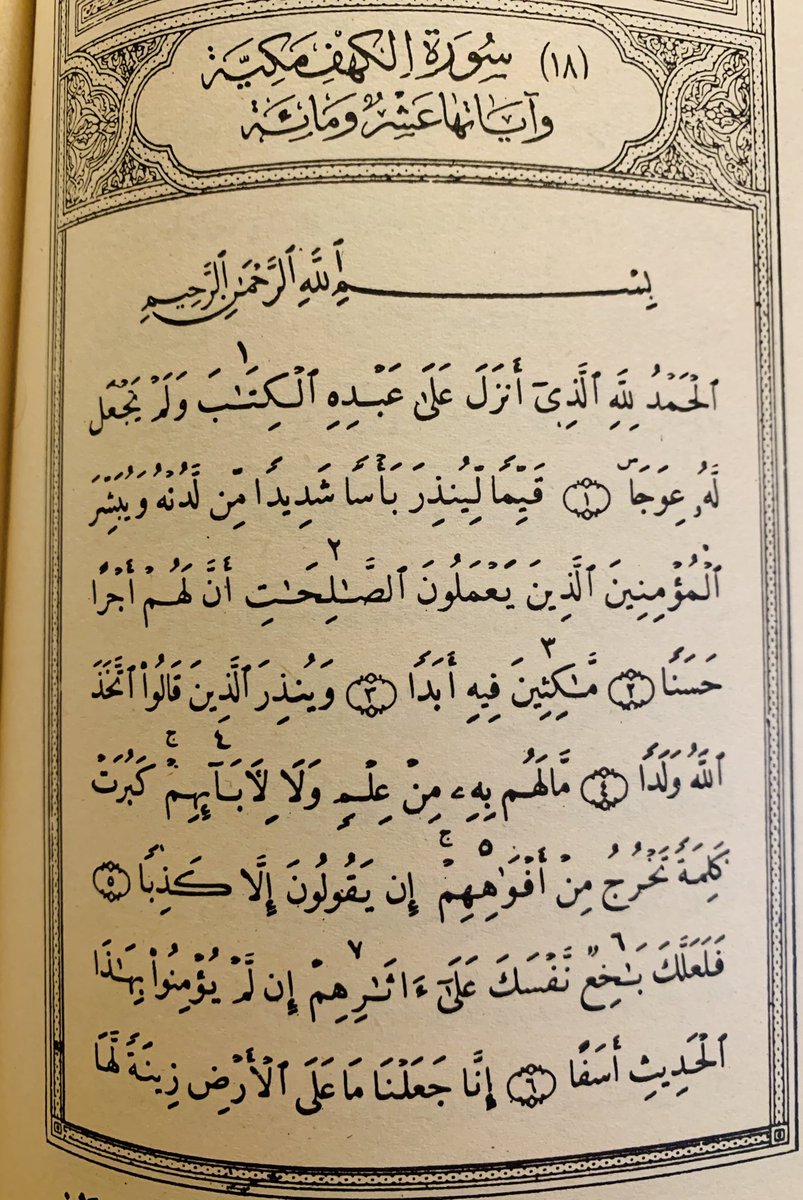 (١٨) سُورَةُ الكَهْفِ مَكِيَّة
وَآيَاتهَا عَشْرٌ وَمَائِة
بِسْمِ ٱللَّهِ ٱلرَّحْمَٰنِ ٱلرَّحِيمِ
١
ٱلْحَمْدُ لِلَّهِ ٱلَّذِىٓ أَنزَلَ عَلَىٰ عَبْدِهِ ٱلْكِتَٰبَ وَلَمْ يَجْعَل
لَّهُۥ عِوَجَاۜ ١ قَيِّمًا لِّيُنذِرَ بَأْسًا شَدِيدًا مِّن لَّدُنْهُ وَيُبَشِّرَ
٢
ٱلْمُؤْمِنِينَ ٱلَّذِينَ يَعْمَلُونَ ٱلصَّٰلِحَٰتِ أَنَّ لَهُمْ أَجْرًا
٣
حَسَنًا ٢ مَّٰكِثِينَ فِيهِ أَبَدًا ٣ وَيُنذِرَ ٱلَّذِينَ قَالُوا۟ ٱتَّخَذَ
٤
ٱللَّهُ وَلَدًا ٤ مَّالَهُم بِهِۦ مِنْ عِلْمٍ وَلَا لِأَبَآئِهِمْۚ كَبُرَتْ
٥
كَلِمَةً تَخْرُجُ مِنْ أَفْوَٰهِهِمْۚ إِن يَقُولُونَ إِلَّا كَذِبًا ٥
٦ ٧
فَلَعَلَّكَ بَٰخِعٌ نَّفْسَكَ عَلَىٰٓ ءَاثَٰرِهِمْ إِن لَّمْ يُؤْمِنُوا۟ بِهَٰذَا
ٱلْحَدِيثِ أَسَفًا ٦ إِنَّا جَعَلْنَا مَا عَلَى ٱلْأَرْضِ زِينَةً لَّهَا